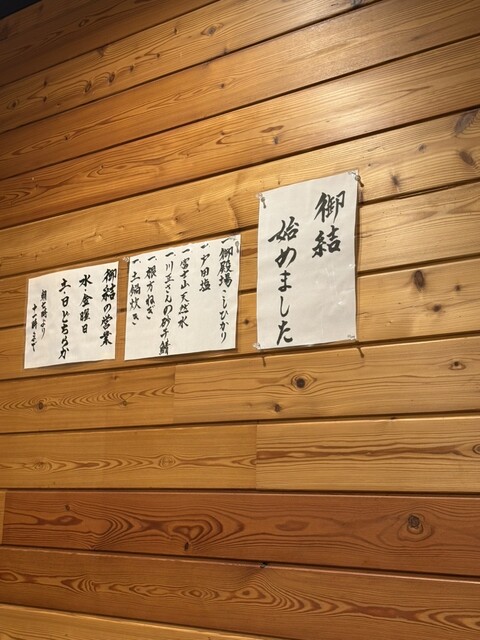 御結
始めました
一御殿場こしひかり
一戸田塩
一富士山天然水
一川正さんの砂子鯖
一根方ねぎ
一土鍋炊き
御結の営業
水・金曜日
土・日どちらか
朝七時より
十一時まで